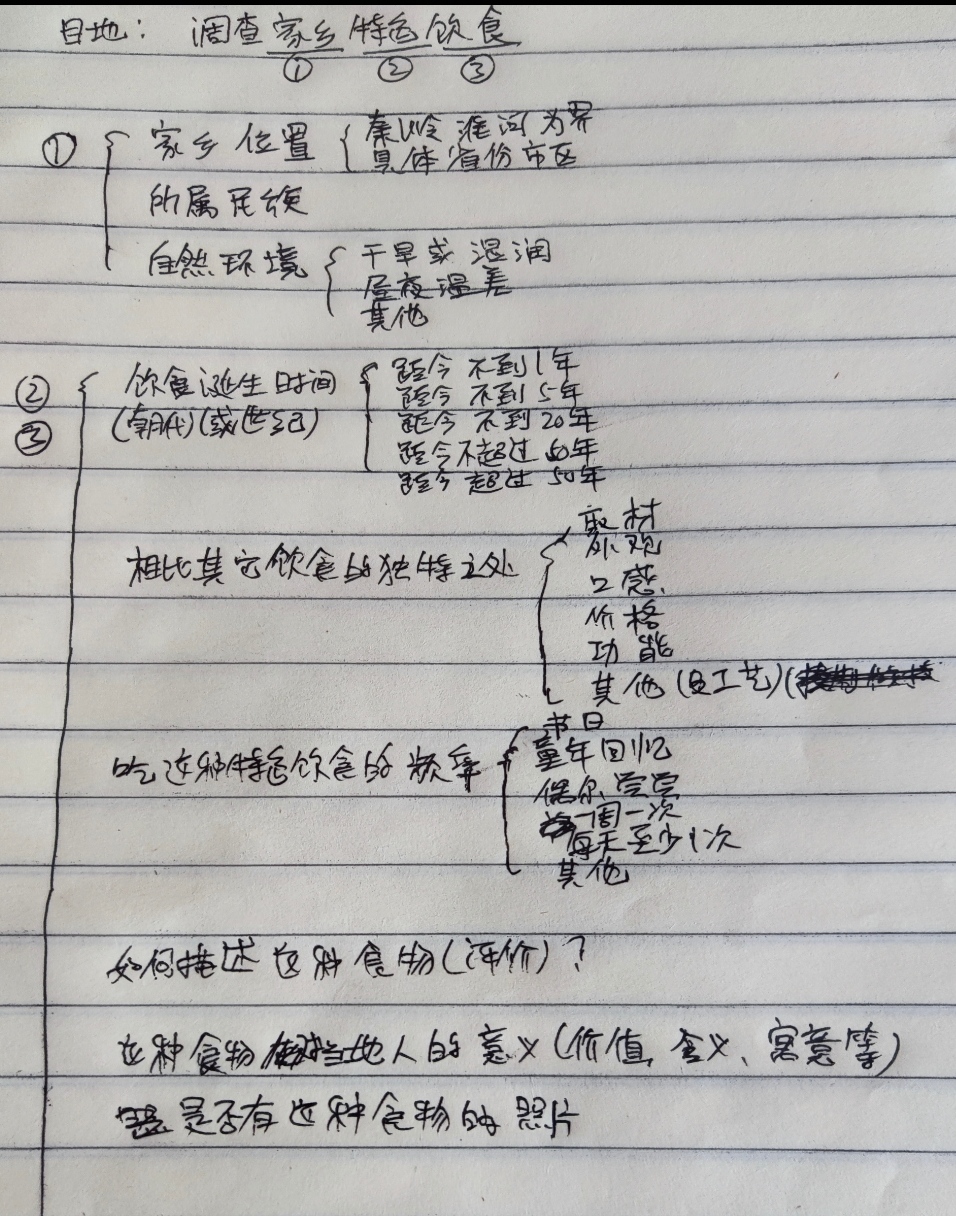 目地：调查家乡特色饮食
① ② ③
① 家乡位置 秦岭淮河为界
具体省份市区
所属民族
自然环境 干旱或湿润
昼夜温差
其他
② 饮食诞生时间 距今不到1年
③ (朝代)(或世纪) 距今不到5年
距今不到20年
距今不超过50年
距今超过50年
相比其它饮食的独特之处 取材
外观
口感
价格
功能
其他(如工艺)
吃这种特色饮食的频率 节日
童年回忆
偶尔尝尝
一周一次
每天至少1次
其他
如何描述这种食物(评价)?
这种食物对当地人的意义(价值、含义、寓意等)
是否有这种食物的照片